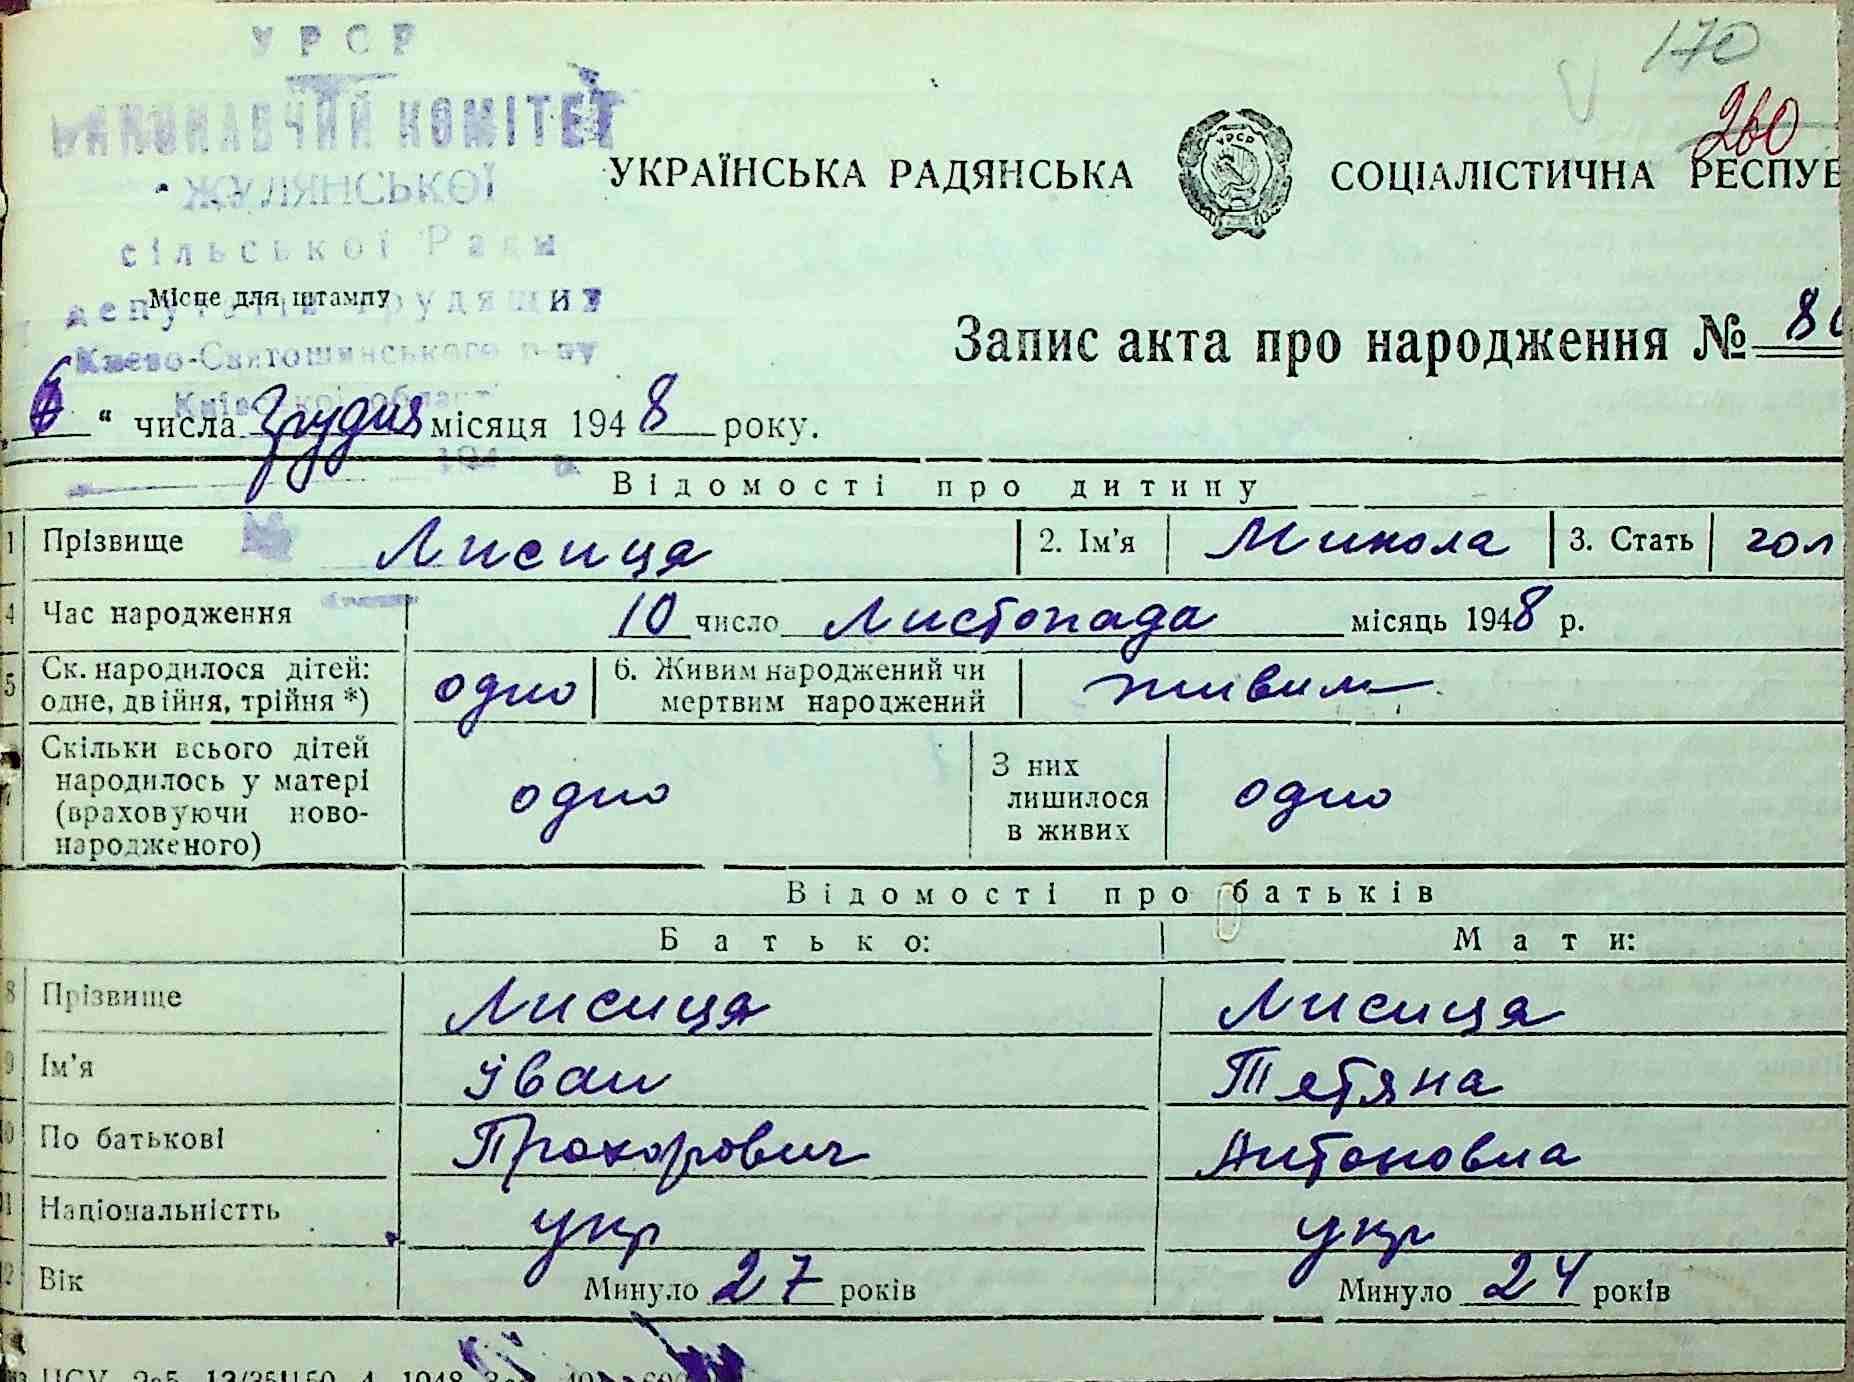 170
260
УРСР
ВИКОНАВЧИЙ КОМІТЕТ
ЖУЛЯНСЬКОЇ
сільської Ради
депутатів трудящих
Києво-Святошинського р-ну
Київської області
194 р.
УКРАЇНСЬКА РАДЯНСЬКА СОЦІАЛІСТИЧНА РЕСПУБ
УРСР
Місце для штампу
Запис акта про народження № 80
6 " числа Грудня місяця 1948 року.
Відомості про дитину
1 Прізвище Лисиця 2. Ім'я Микола 3. Стать чол
4 Час народження 10 число Листопада місяць 1948 р.
5 Ск. народилося дітей: одне, двійня, трійня *) одно 6. Живим народжений чи мертвим народжений живим
7 Скільки всього дітей народилось у матері (враховуючи ново-народженого) одно З них лишилося в живих одно
Відомості про батьків
Батько: Мати:
8 Прізвище Лисиця Лисиця
9 Ім'я Іван Тетяна
0 По батькові Прохорович Антоновна
1 Національністть укр укр
2 Вік Минуло 27 років Минуло 24 років
ЦСУ 1948